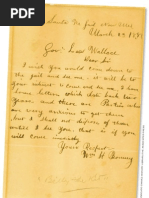 Santa Fe Jail New Mex
March 1881
Gov. Lew Wallace
Dear Sir
I wish you would come down to
the jail and see me. it will be to
your interest to come and see me. I have
some letters which date back two
years and there are Parties who
are very anxious to get them
but I shall not dispose of them
until I see you. that is if you
will come imediately
Yours Respect
Wm H Bonney